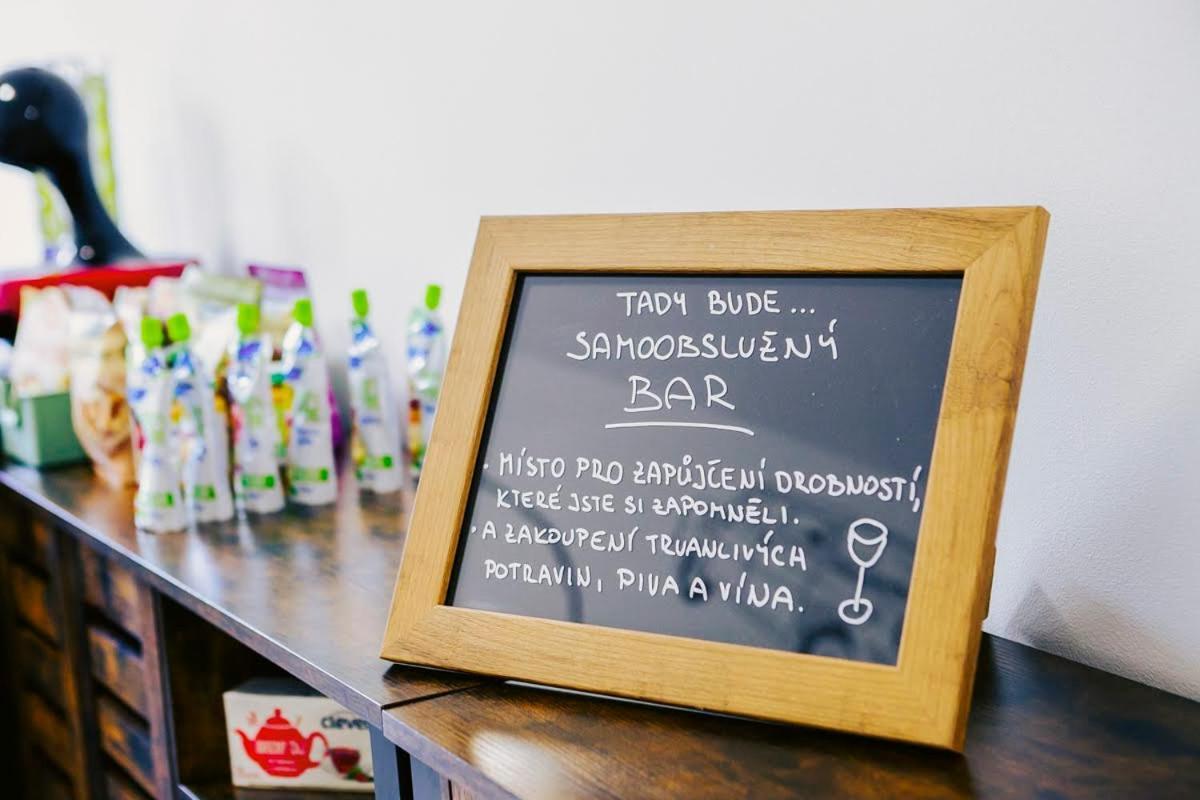 TADY BUDE...
SAMOOBSLUŽNÝ
BAR
• MÍSTO PRO ZAPŮJČENÍ DROBNOSTÍ,
KTERÉ JSTE SI ZAPOMNĚLI.
• A ZAKOUPENÍ TRVANLIVÝCH
POTRAVIN, PIVA A VÍNA.
clever